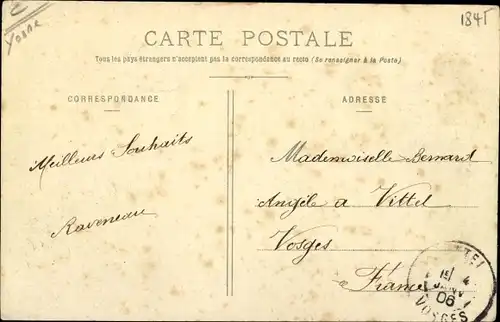 Yonne
1845
CARTE POSTALE
Tous les pays étrangers n'acceptent pas la correspondance au recto (Se renseigner à la Poste)
CORRESPONDANCE
ADRESSE
Meilleurs Souhaits
Raveneau
Mademoiselle Bernard
Angèle a Vittel
Vosges
France
15 4
JANV
06
VOSGES